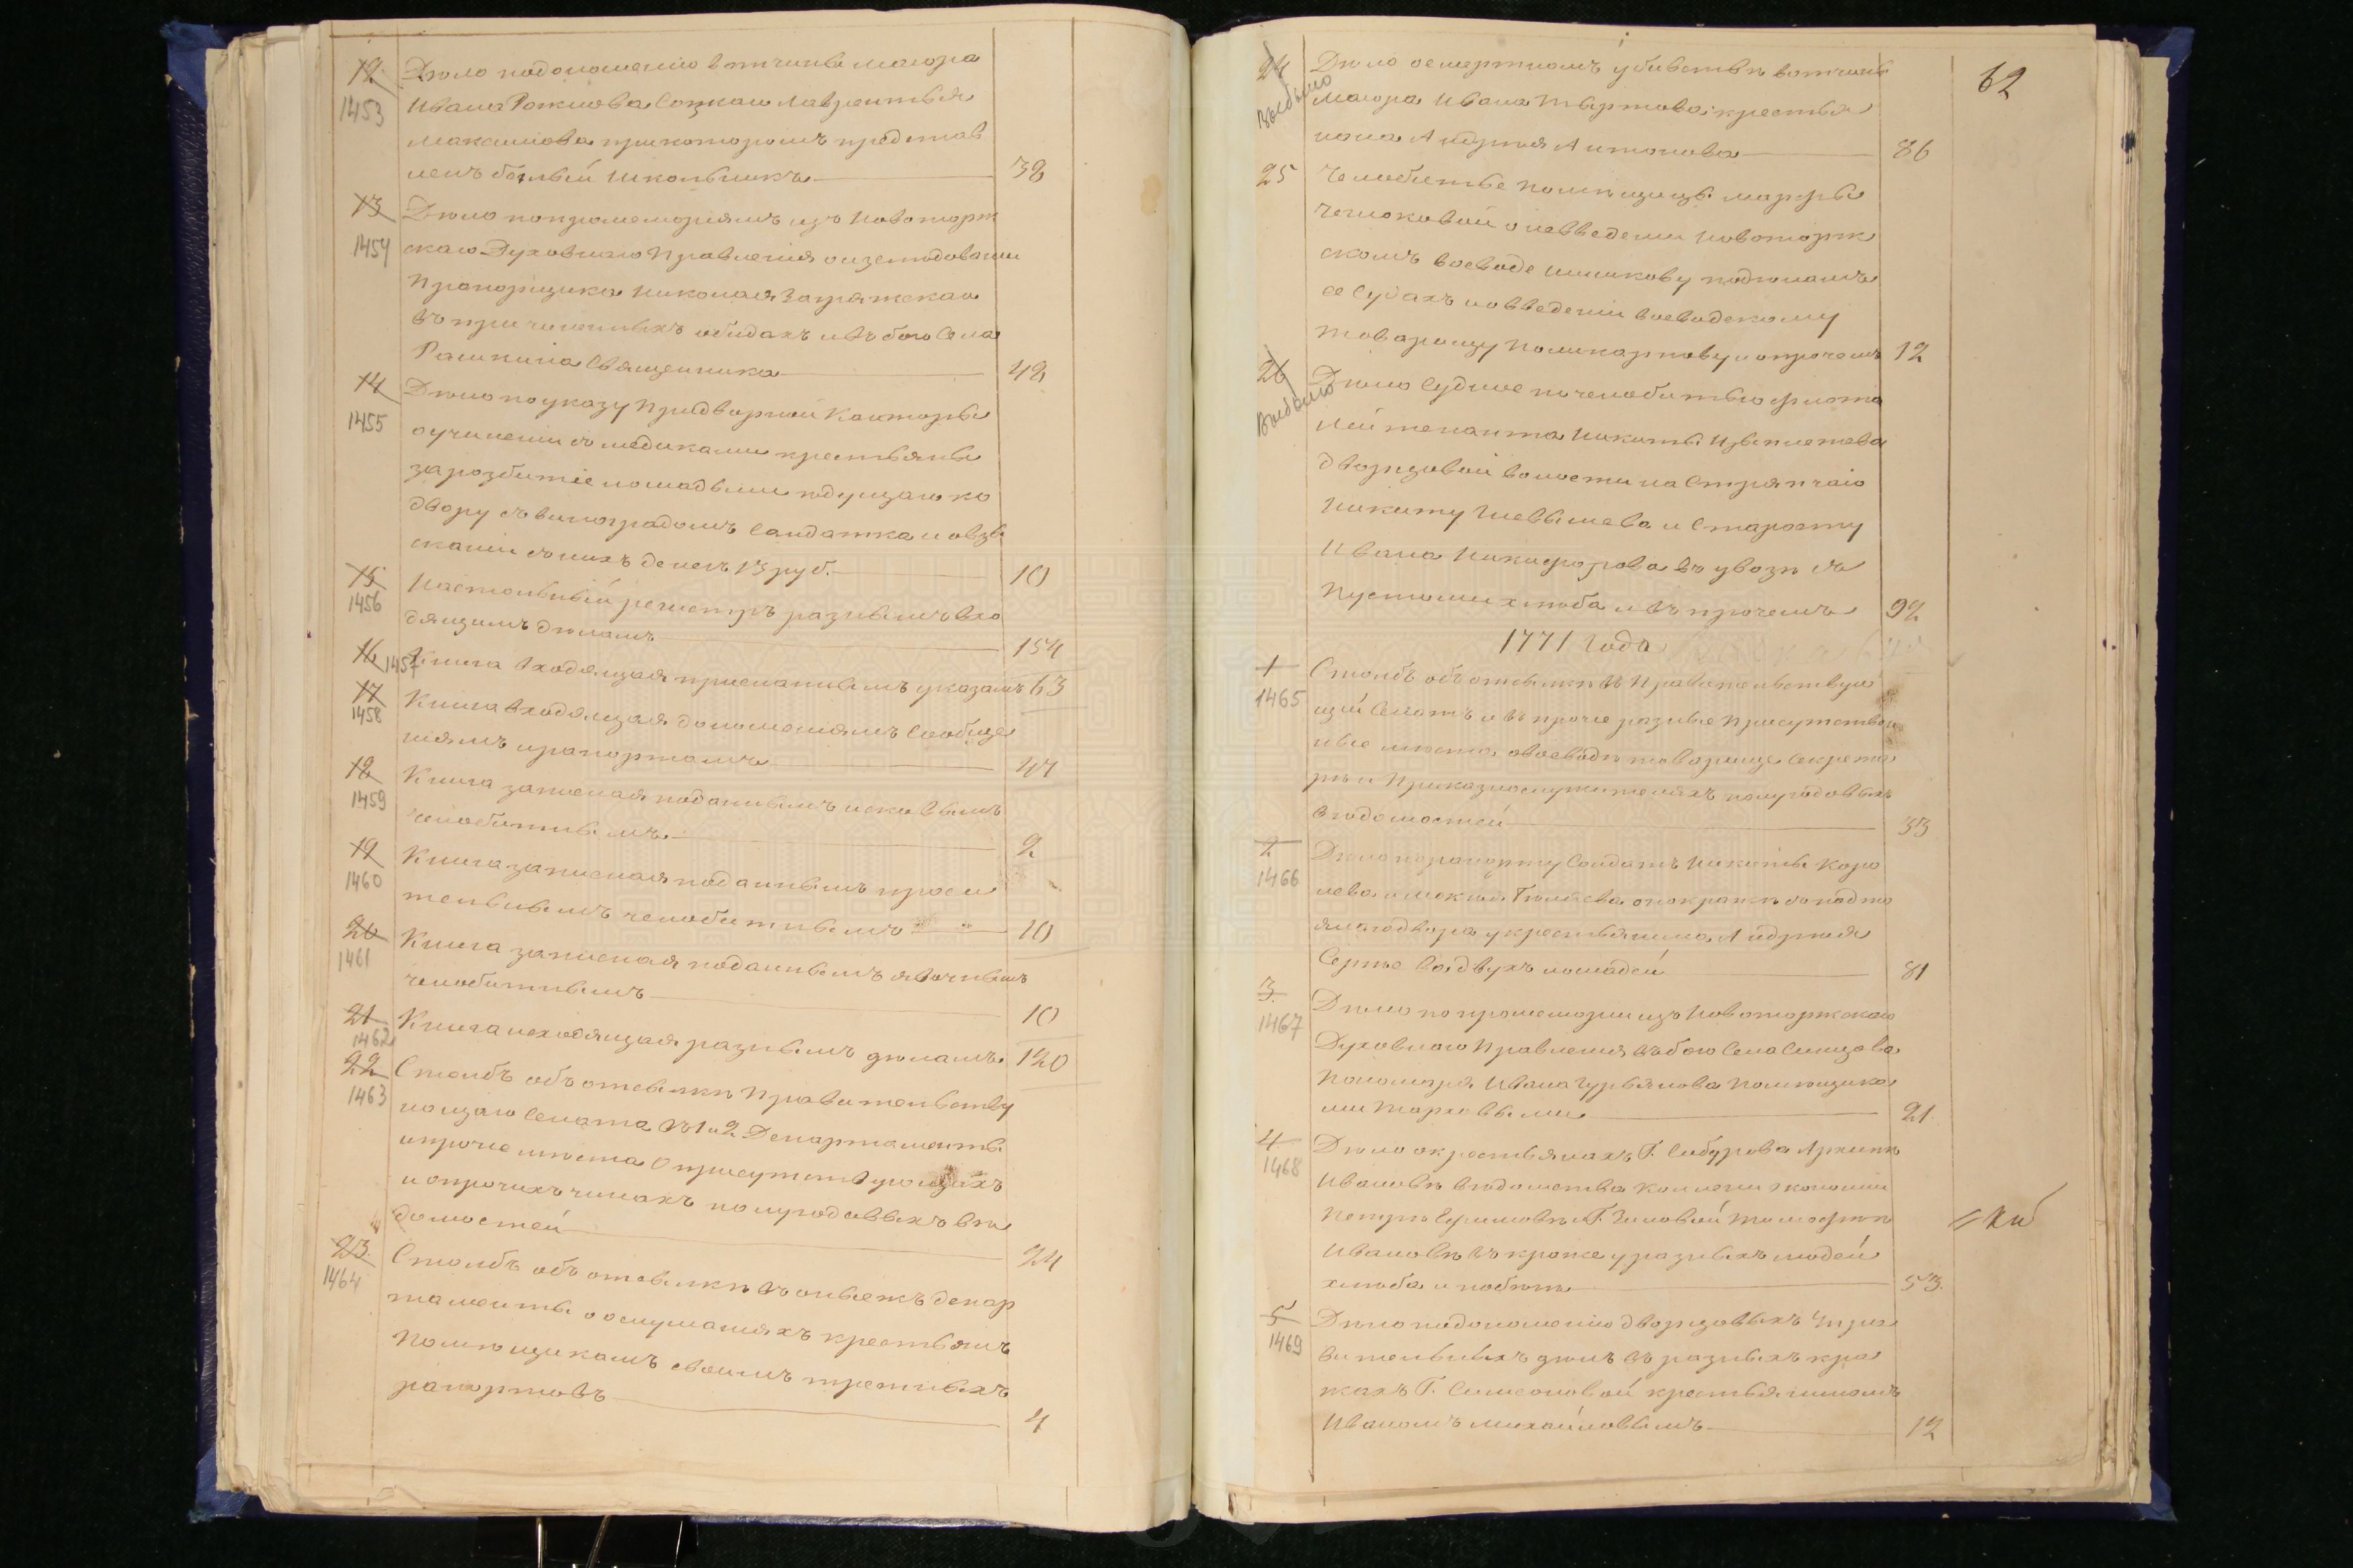 12 Дѣло подоношению вотчины маіора
1453 Ивана Рожнова Соцкаго Лаврентья
Максимова прикоторомъ представ
ленъ беглый Школьникъ 38
13 Дѣло попромеморіямъ изъ Новоторж
1454 скаго Духовнаго Правленія о изследовании
Прапорщика Николая Загряжскаго
въ причиненныхъ обидахъ и въ бою Села
Рашкина Священника 42
14 Дѣло по указу Придворной Канторы
1455 о учинении съ медиками крестьяны
за розбитіе лошадьми едущаго ко
двору съ виноградомъ Солдатка и о взы
скании съ нихъ денегъ 13 руб. 10
15 Настольный регистръ разнымъ вхо
1456 дящимъ дѣламъ 154
16 1457 Книга входящая присланнымъ указамъ 63
17 Книга входящая доношениямъ Сообще
1458 ниямъ ирапортамъ 44
18 Книга записная поданнымъ исковымъ
1459 челобитнымъ 2
19 Книга записная поданнымъ проси
1460 тельнымъ челобитнымъ 10
20 Книга записная поданнымъ явочнымъ
1461 челобитнымъ 10
21 Книга исходящая разнымъ дѣламъ 120
1462
22 Столбъ объ отсылкѣ Правительству
1463 ющаго Сената въ 1 и 2 Департаменты
ипрочие мѣста О присутствующихъ
и опрочихъ чинахъ полугодовыхъ вѣ
домостей 24
23 Столбъ объ отсылкѣ въ оныежъ депар
1464 таменты о ослушанияхъ крестьянъ
Помѣщикамъ своимъ третныхъ
рапортовъ 4
62
24 Дѣло осмертномъ убивствѣ вотчины
Выбыло Маіора Ивана Тыртова крестья
нина Андрея Антонова 86
25 Челобитье помѣщицы марфы
о невведении Новоторж
скомъ воеводе Шишкову поделамъ
ее Судахъ и овведении воеводскому
товарищу Поликарпову и опрочемъ 12
26 Дѣло Судное по челобитью флота
Выбыло Лейтенанта Никиты
дворцовой волости на Стряпчаго
Никиту и Старосту
Ивана Никифорова въ увозѣ съ
Пустоши хлѣба и въ прочемъ 92
1771 года
1 Столбъ объ отсылкѣ въ Правительствую
1465 щий Сенатъ и въ прочие разные Присутствен
ные мѣста овоеводѣ товарище Секрета
рѣ и Приказнослужителяхъ полугодовыхъ
вѣдомостей 33
2 Дѣло порапорту Солдатъ Никиты Коро
1466 лева опокражи съ
двора укрестьянина Андрея
Сергѣева двухъ лошадей 81
3. Дѣло по промемории изъ Новоторжскаго
1467 Духовнаго Правления въ бою Села Синцова
Пономаря Ивана Гурьянова Помѣщика
ми 21.
4 Дѣло окрестьянахъ Г. Сабурова Архипѣ
1468 Ивановѣ вѣдомства Коллегии экономии
Петрѣ Ефимовѣ и Г.
Ивановѣ въ краже у разныхъ людей
хлѣба и побѣге 53.
5 Дѣло подоношению дворцовыхъ Упра
1469 вительныхъ дѣлъ въ разныхъ кра
жахъ Г. Симоновой крестьяниномъ
Иваномъ михайловымъ 12